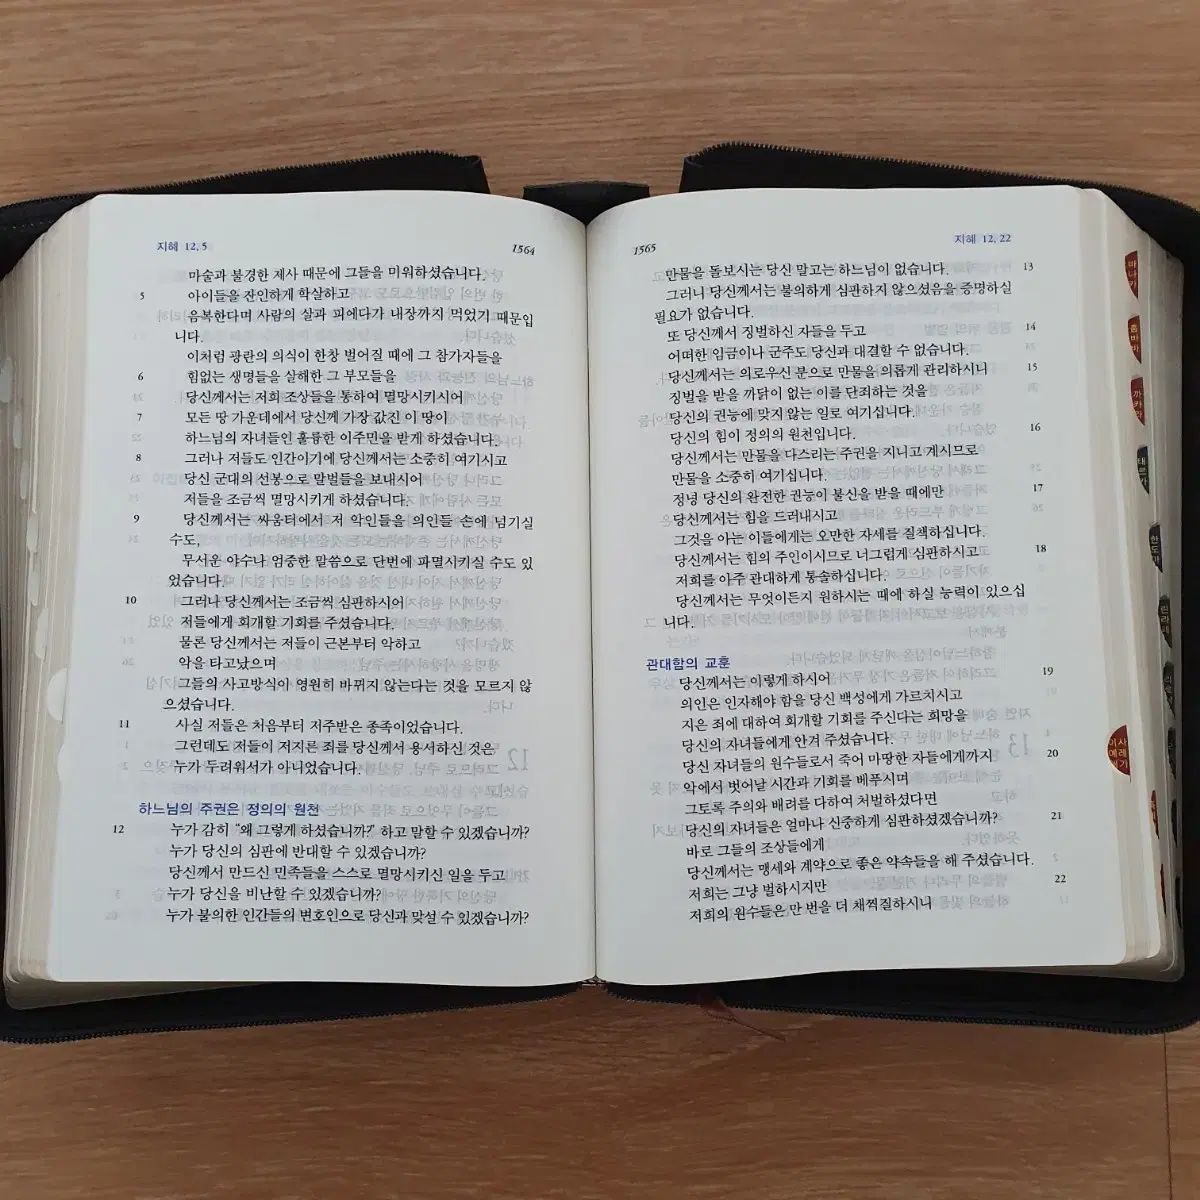 지혜 12,5
1564
마술과 불경한 제사 때문에 그들을 미워하셨습니다.
5 아이들을 잔인하게 학살하고
음복한다며 사람의 살과 피에다가 내장까지 먹었기 때문입
니다.
이처럼 광란의 의식이 한창 벌어질 때에 그 참가자들을
6 힘없는 생명들을 살해한 그 부모들을
당신께서는 저희 조상들을 통하여 멸망시키시어
7 모든 땅 가운데에서 당신께 가장 값진 이 땅이
하느님의 자녀들인 훌륭한 이주민을 받게 하셨습니다.
8 그러나 저들도 인간이기에 당신께서는 소중히 여기시고
당신 군대의 선봉으로 말벌들을 보내시어
저들을 조금씩 멸망시키게 하셨습니다.
9 당신께서는 싸움터에서 저 악인들을 의인들 손에 넘기실
수도,
무서운 야수나 엄중한 말씀으로 단번에 파멸시키실 수도 있
었습니다.
10 그러나 당신께서는 조금씩 심판하시어
저들에게 회개할 기회를 주셨습니다.
물론 당신께서는 저들이 근본부터 악하고
악을 타고났으며
그들의 사고방식이 영원히 바뀌지 않는다는 것을 모르지 않
으셨습니다.
11 사실 저들은 처음부터 저주받은 종족이었습니다.
그런데도 저들이 저지른 죄를 당신께서 용서하신 것은
누가 두려워서가 아니었습니다.
하느님의 주권은 정의의 원천
12 누가 감히 “왜 그렇게 하셨습니까?” 하고 말할 수 있겠습니까?
누가 당신의 심판에 반대할 수 있겠습니까?
당신께서 만드신 민족들을 스스로 멸망시키신 일을 두고
누가 당신을 비난할 수 있겠습니까?
누가 불의한 인간들의 변호인으로 당신과 맞설 수 있겠습니까?
1565
지혜 12,22
만물을 돌보시는 당신 말고는 하느님이 없습니다. 13
그러니 당신께서는 불의하게 심판하지 않으셨음을 증명하실
필요가 없습니다.
또 당신께서 징벌하신 자들을 두고 14
어떠한 임금이나 군주도 당신과 대결할 수 없습니다.
당신께서는 의로우신 분으로 만물을 의롭게 관리하시니 15
징벌을 받을 까닭이 없는 이를 단죄하는 것을
당신의 권능에 맞지 않는 일로 여기십니다.
당신의 힘이 정의의 원천입니다. 16
당신께서는 만물을 다스리는 주권을 지니고 계시므로
만물을 소중히 여기십니다.
정녕 당신의 완전한 권능이 불신을 받을 때에만 17
당신께서는 힘을 드러내시고
그것을 아는 이들에게는 오만한 자세를 질책하십니다.
당신께서는 힘의 주인이시므로 너그럽게 심판하시고 18
저희를 아주 관대하게 통솔하십니다.
당신께서는 무엇이든지 원하시는 때에 하실 능력이 있으십
니다.
관대함의 교훈
당신께서는 이렇게 하시어 19
의인은 인자해야 함을 당신 백성에게 가르치시고
지은 죄에 대하여 회개할 기회를 주신다는 희망을
당신의 자녀들에게 안겨 주셨습니다.
당신 자녀들의 원수들로서 죽어 마땅한 자들에게까지 20
악에서 벗어날 시간과 기회를 베푸시며
그토록 주의와 배려를 다하여 처벌하셨다면
당신의 자녀들은 얼마나 신중하게 심판하셨겠습니까? 21
바로 그들의 조상들에게
당신께서는 맹세와 계약으로 좋은 약속들을 해 주셨습니다.
저희는 그냥 벌하시지만 22
저희의 원수들은 만 번을 더 채찍질하시니
이사
예레
애가